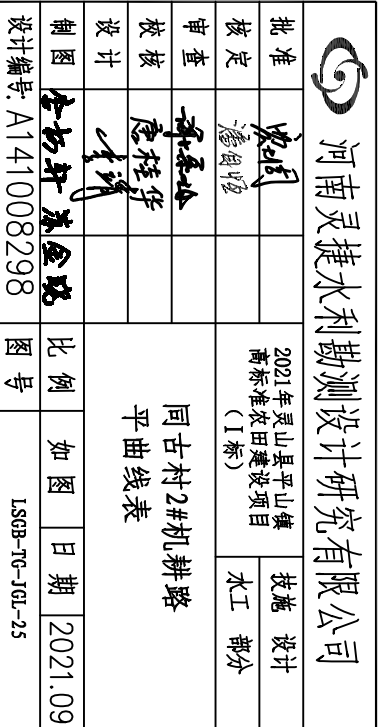 河南灵捷水利勘测设计研究有限公司
批准
2021年灵山县平山镇
高标准农田建设项目
(I标)
技施 设计
核定
水工 部分
审查
校核 唐桂华
同古村2#机耕路
平曲线表
设计
制图
比例 如图 日期 2021.09
设计编号: A141008298
图号 LSGB-TG-JGL-25